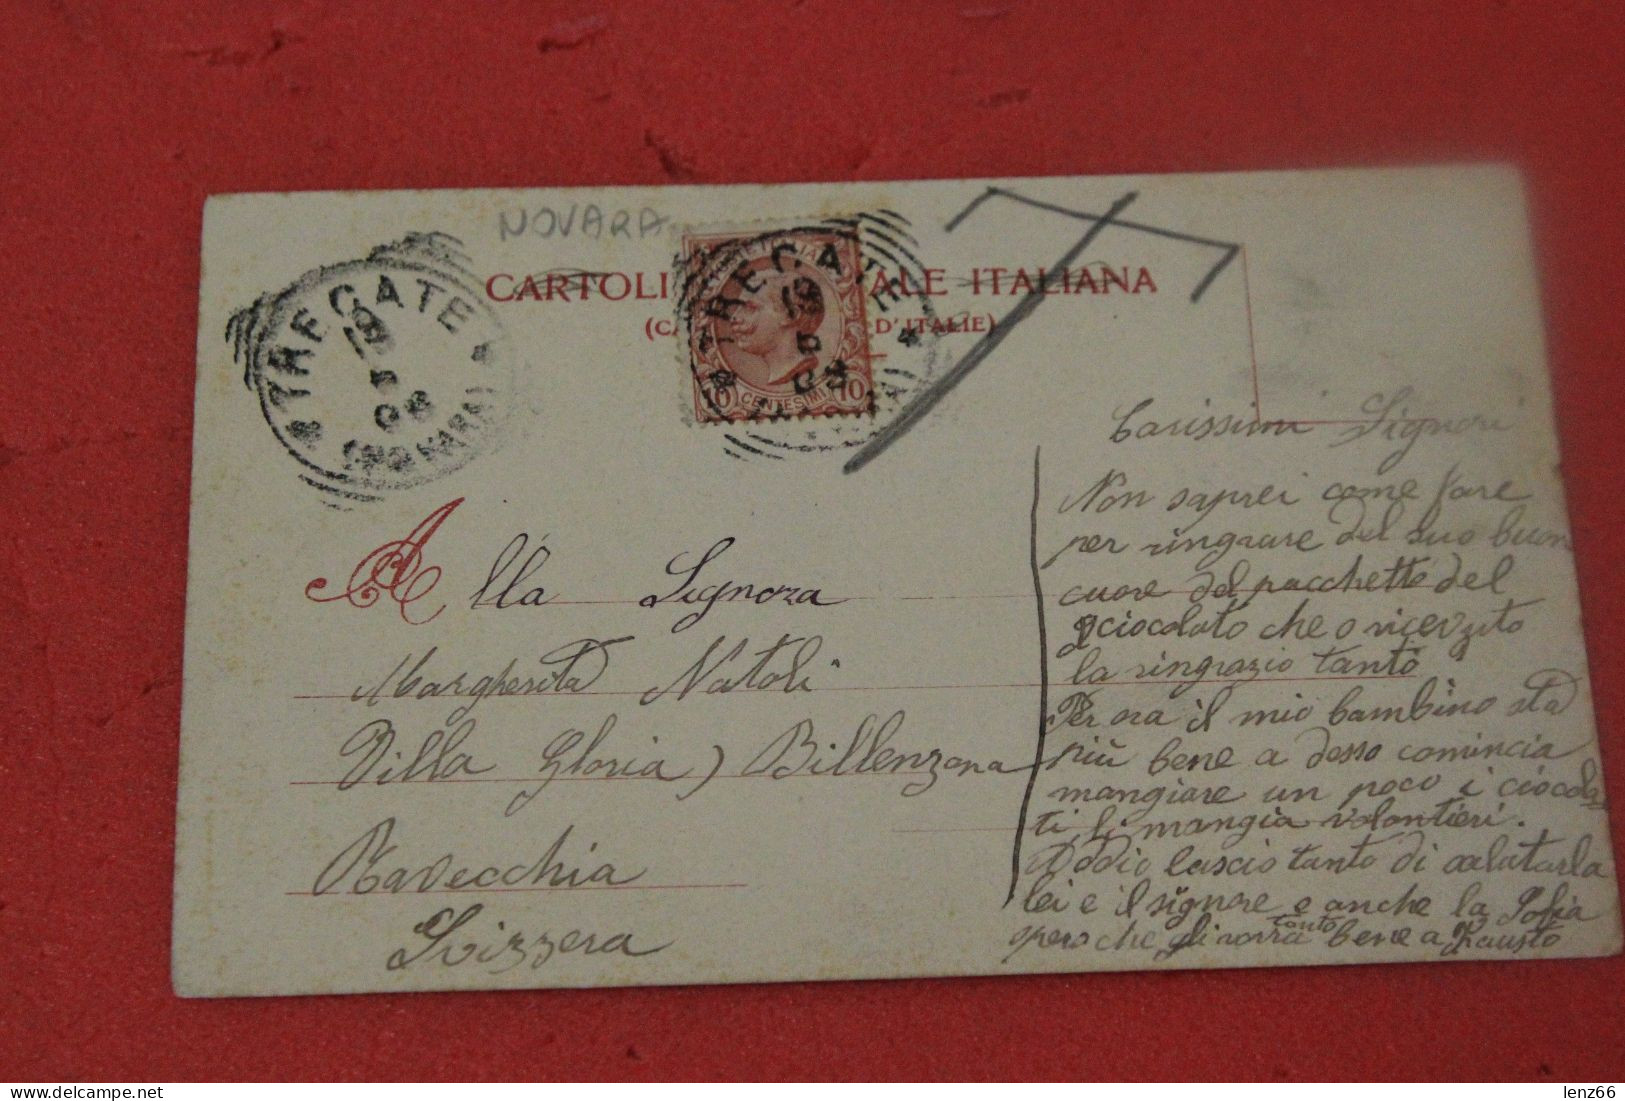 NOVARA
CARTOLI ALE ITALIANA
(CA D'ITALIE)
TREGATE
08
(NOVARA)
TREGATE
19
5
08
10 CENTESIMI 10
Alla Signora
Margherita Natoli
Villa Gloria) Billenzona
Ravecchia
Svizzera
Carissimi Signori
Non saprei come fare
per ringraare del suo buon
cuore del pacchetto del
cciocolato che o ricevuto
la ringrazio tanto
Per ora il mio bambino sta
più bene a desso comincia
mangiare un poco i ciocola
ti, li mangia volontieri.
Addio lascio tanto di salutarla
lei e il signore e anche la Sofia
spero che gli vorra tanto bene a Fausto
lenz66